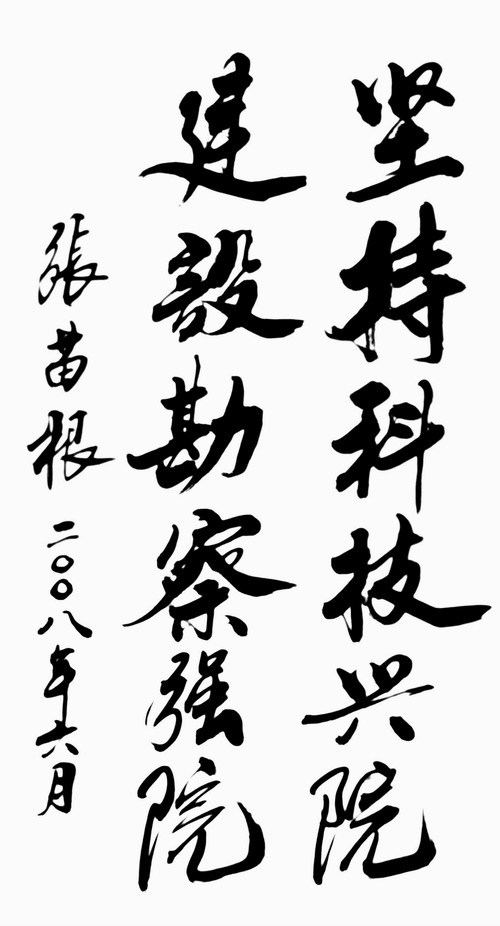 坚持科技兴院
建設勘察强院
張苗根 二〇〇八年六月